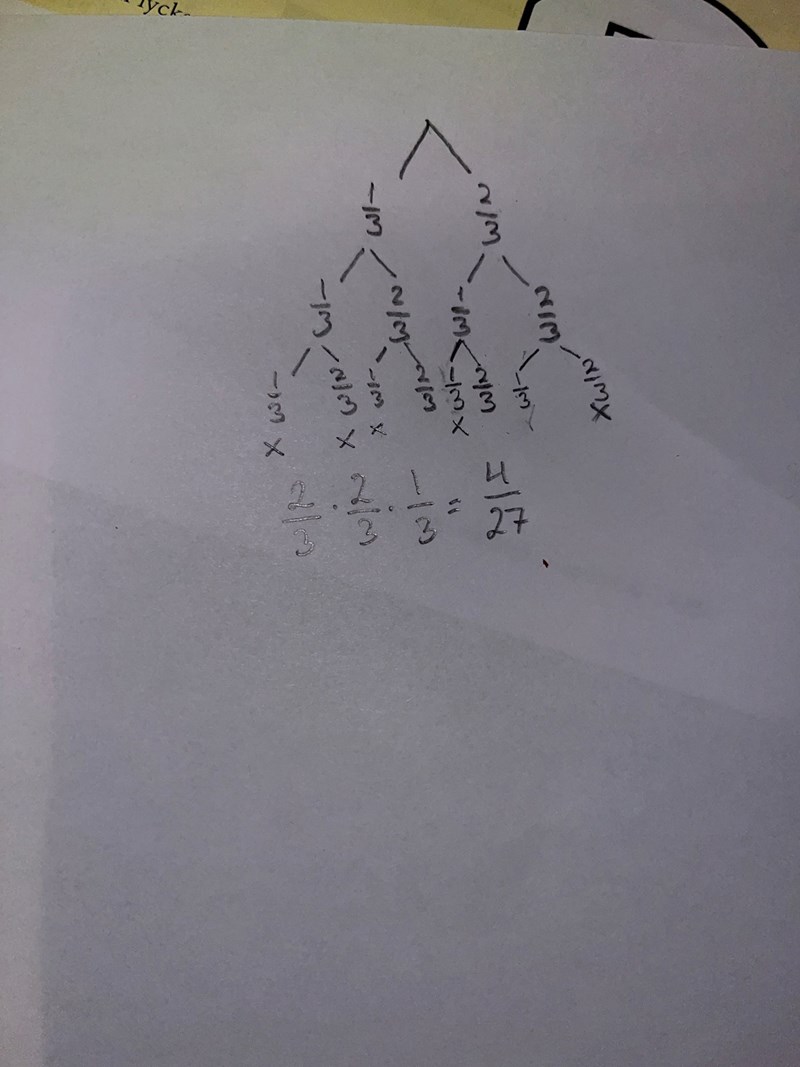 1/3 2/3
1/3 2/3 1/3 2/3
1/3 2/3 1/3 2/3 1/3 2/3 1/3 2/3
x x x x x
2/3 · 2/3 · 1/3 = 4/27